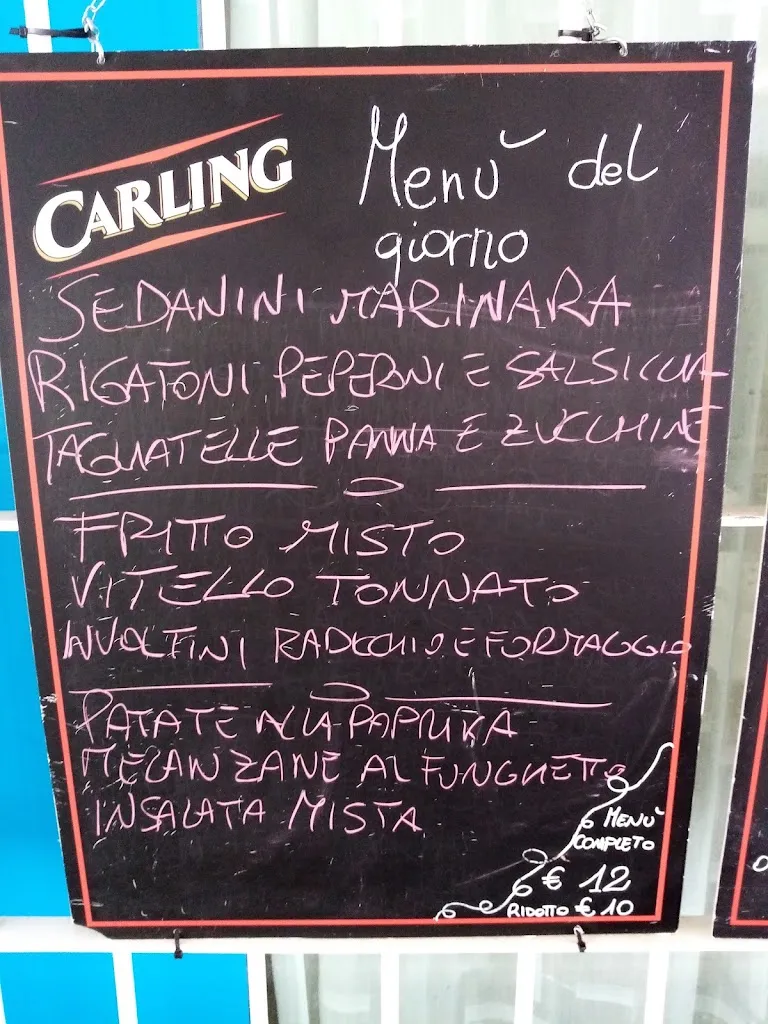 CARLING
Menù del
giorno
SEDANINI MARINARA
RIGATONI PEPERONI E SALSICCIA
TAGLIATELLE PANNA E ZUCCHINE
FRITTO MISTO
VITELLO TONNATO
INVOLTINI RADICCHIO E FORMAGGIO
PATATE ALLA PAPRIKA
MELANZANE AL FUNGHETTO
INSALATA MISTA
MENÙ
COMPLETO
€ 12
RIDOTTO € 10